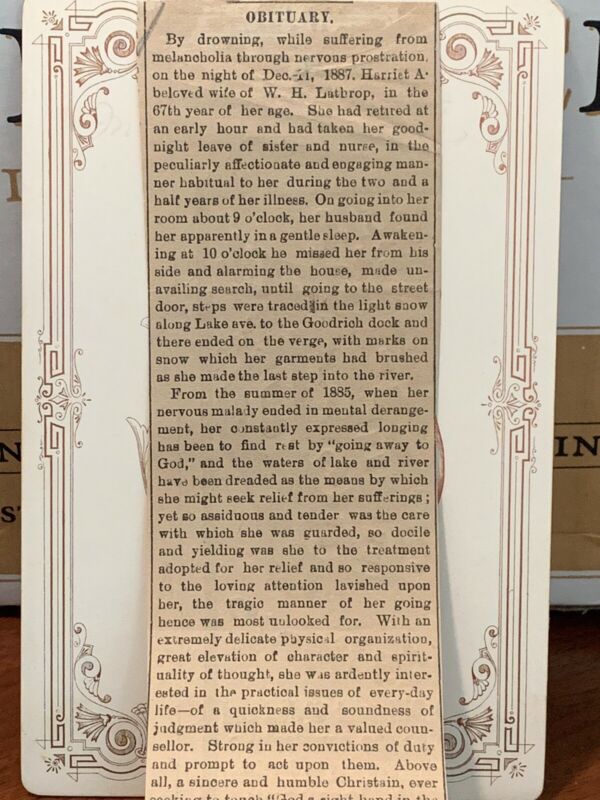 OBITUARY.
By drowning, while suffering from
melancholia through nervous prostration,
on the night of Dec. 11, 1887, Harriet A.
beloved wife of W. H. Lathrop, in the
67th year of her age. She had retired at
an early hour and had taken her good-
night leave of sister and nurse, in the
peculiarly affectionate and engaging man-
ner habitual to her during the two and a
half years of her illness. On going into her
room about 9 o'clock, her husband found
her apparently in a gentle sleep. Awaken-
ing at 10 o'clock he missed her from his
side and alarming the house, made un-
availing search, until going to the street
door, steps were traced in the light snow
along Lake ave. to the Goodrich dock and
there ended on the verge, with marks on
snow which her garments had brushed
as she made the last step into the river.
From the summer of 1885, when her
nervous malady ended in mental derange-
ment, her constantly expressed longing
has been to find rest by "going away to
God," and the waters of lake and river
have been dreaded as the means by which
she might seek relief from her sufferings;
yet so assiduous and tender was the care
with which she was guarded, so docile
and yielding was she to the treatment
adopted for her relief and so responsive
to the loving attention lavished upon
her, the tragic manner of her going
hence was most unlooked for. With an
extremely delicate physical organization,
great elevation of character and spirit-
uality of thought, she was ardently inter-
ested in the practical issues of every-day
life—of a quickness and soundness of
judgment which made her a valued coun-
sellor. Strong in her convictions of duty
and prompt to act upon them. Above
all, a sincere and humble Christain, ever
seeking to touch "God's right hand in the
N
ST
IN